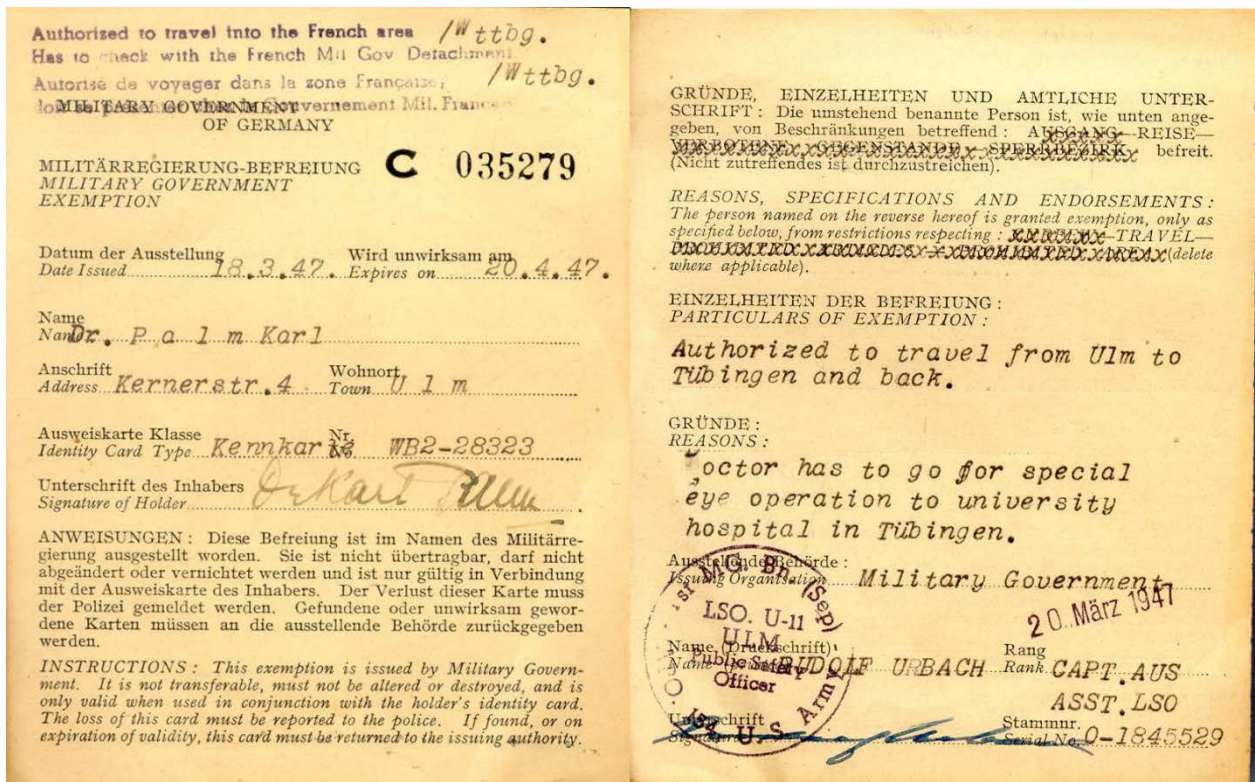 Authorized to travel into the French area /Wttbg.
Has to check with the French Mil Gov Detachment.
Autorisé de voyager dans la zone Française, /Wttbg.
Gouvernement Mil. Francais
MILITARY GOVERNMENT
OF GERMANY
MILITÄRREGIERUNG-BEFREIUNG C 035279
MILITARY GOVERNMENT
EXEMPTION
Datum der Ausstellung Wird unwirksam am
Date Issued 18.3.47. Expires on 20.4.47.
Name
Name Dr. P a l m Karl
Anschrift Wohnort
Address Kernerstr.4 Town U l m
Ausweiskarte Klasse Nr.
Identity Card Type Kennkarte No WB2-28323
Unterschrift des Inhabers
Signature of Holder Dr Karl Palm
ANWEISUNGEN : Diese Befreiung ist im Namen des Militärre-
gierung ausgestellt worden. Sie ist nicht übertragbar, darf nicht
abgeändert oder vernichtet werden und ist nur gültig in Verbindung
mit der Ausweiskarte des Inhabers. Der Verlust dieser Karte muss
der Polizei gemeldet werden. Gefundene oder unwirksam gewor-
dene Karten müssen an die ausstellende Behörde zurückgegeben
werden.
INSTRUCTIONS : This exemption is issued by Military Govern-
ment. It is not transferable, must not be altered or destroyed, and is
only valid when used in conjunction with the holder's identity card.
The loss of this card must be reported to the police. If found, or on
expiration of validity, this card must be returned to the issuing authority.
GRÜNDE, EINZELHEITEN UND AMTLICHE UNTER-
SCHRIFT : Die umstehend benannte Person ist, wie unten ange-
geben, von Beschränkungen betreffend : AUSGANG—REISE—
VERBOTENE GEGENSTANDE—SPERRBEZIRK befreit.
(Nicht zutreffendes ist durchzustreichen).
REASONS, SPECIFICATIONS AND ENDORSEMENTS :
The person named on the reverse hereof is granted exemption, only as
specified below, from restrictions respecting : CURFEW—TRAVEL—
PROHIBITED ARTICLES—PROHIBITED AREA (delete
where applicable).
EINZELHEITEN DER BEFREIUNG :
PARTICULARS OF EXEMPTION :
Authorized to travel from Ulm to
Tübingen and back.
GRÜNDE :
REASONS :
octor has to go for special
eye operation to university
hospital in Tübingen.
Ausstellende Behörde :
Issuing Organisation Military Government
20. März 1947
MG. Bn. (Sep)
LSO. U-11
ULM
Public Safety
Officer
U. S. Army
Name (Druckschrift) Rang
Name RUDOLF URBACH Rank CAPT.AUS
ASST.LSO
Unterschrift Stammnr.
Signature Serial No. O-1845529